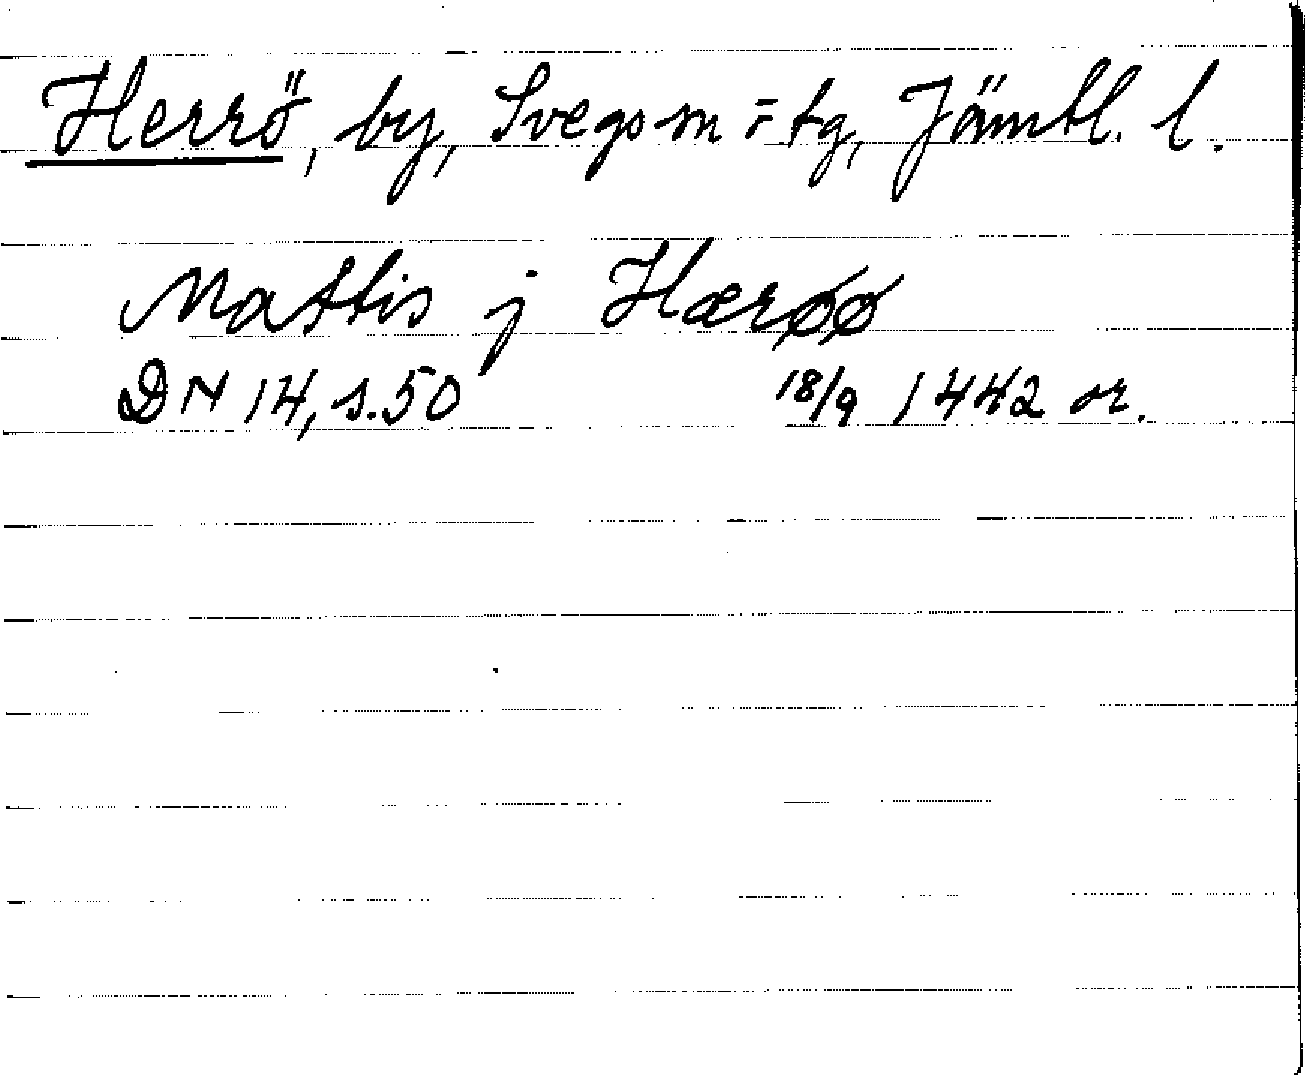 Herrö, by, Svegs sn = tg, Jämtl. l.
Mattis j Hærøø
DN 14, s. 50 18/9 1442 or.